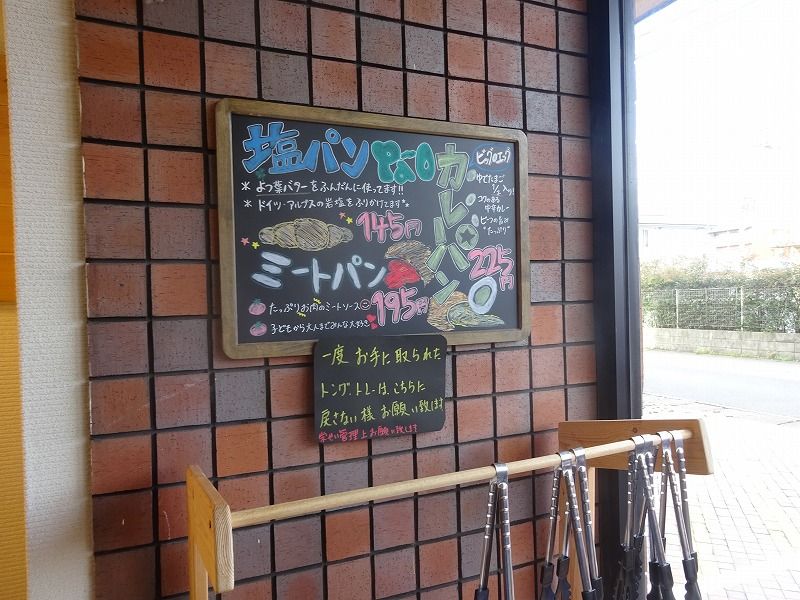 塩パン
* よつ葉バターをふんだんに使ってます!!
* ドイツ・アルプスの岩塩をふりかけてます*
145円
ミートパン
たっぷりお肉のミートソース
子どもから大人までみんな大好き
195円
カレーパン
ビッグロエッグ
ゆでたまご
1/2入り!
コクのある
中辛カレー
ビーフの旨み
"たっぷり"
225円
一度お手に取られた
トング、トレーは、こちらに
戻さない様お願い致します
衛生管理上お願い致します